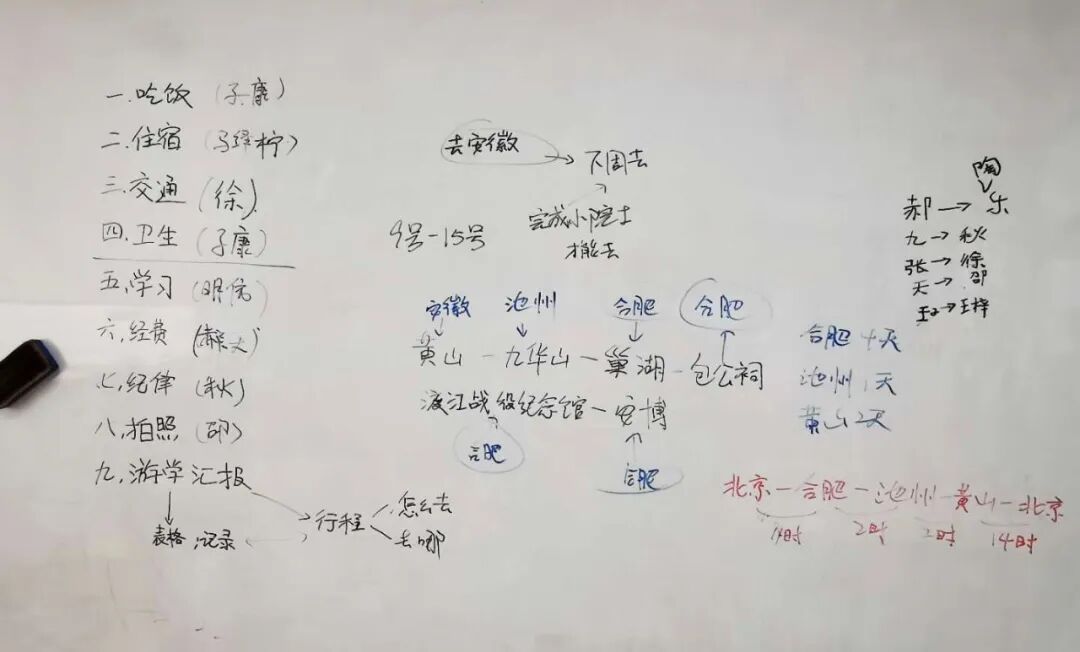 一.吃饭(子康)
二.住宿(马绎柠)
三.交通(徐)
四.卫生(子康)
五.学习(明侑)
六.经费
七.纪律(秋)
八.拍照(邵)
九.游学汇报
表格,记录
行程
怎么去
去哪
去安徽
下周去
完成小院士
才能去
9号-15号
安徽 池州 合肥 合肥
黄山-九华山-巢湖-包公祠
渡江战役纪念馆-安博
合肥
合肥
陶
郝→乐
九→秋
张→徐
天→邵
王→王梓
合肥 4天
池州 1天
黄山2天
北京-合肥-池州-黄山-北京
14时 2时 2时 14时